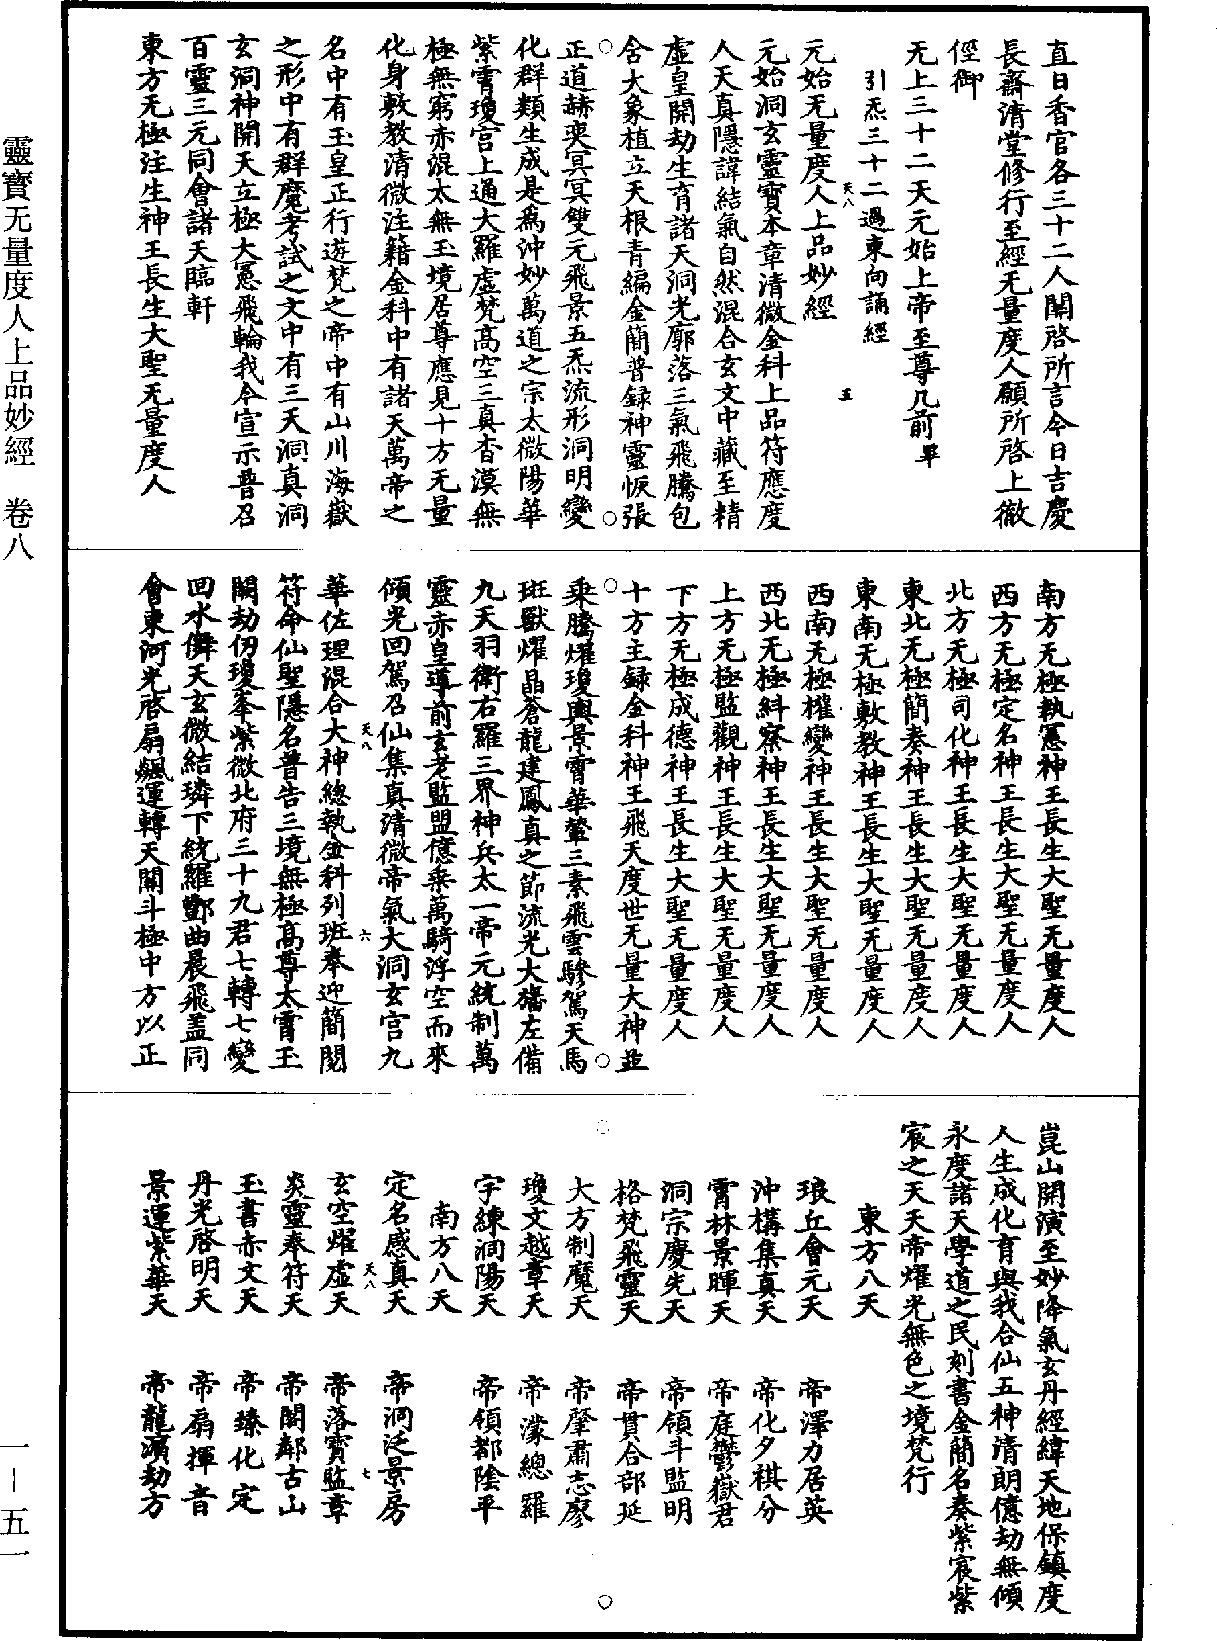 直日香官各三十二人關啓所言今日吉慶
長齋清堂修行至經无量度人願所啓上徹
徑御
无上三十二天元始上帝至尊几前畢
引炁三十二過東向誦經
天八 五
元始无量度人上品妙經
元始洞玄靈寶本章清微金科上品符應度
人天真隱諱結氣自然混合玄文中藏至精
虛皇開劫生育諸天洞光廓落三氣飛騰包
含大象植立天根青編金簡普錄神靈恢張
正道赫奕冥冥雙元飛景五炁流形洞明變
化群類生成是爲沖妙萬道之宗太微陽華
紫霄瓊宮上通大羅虛梵高空三真杳漠無
極無窮赤混太無玉境居尊應見十方无量
化身敷教清微注籍金科中有諸天萬帝之
名中有玉皇正行遊梵之帝中有山川海嶽
之形中有群魔考試之文中有三天洞真洞
玄洞神開天立極大冥飛輪我今宣示普召
百靈三元同會諸天臨軒
東方无極注生神王長生大聖无量度人
南方无極執憲神王長生大聖无量度人
西方无極定名神王長生大聖无量度人
北方无極司化神王長生大聖无量度人
東北无極簡奏神王長生大聖无量度人
東南无極敷教神王長生大聖无量度人
西南无極權變神王長生大聖无量度人
西北无極糾察神王長生大聖无量度人
上方无極監觀神王長生大聖无量度人
下方无極成德神王長生大聖无量度人
十方主錄金科神王飛天度世无量大神並
乘騰耀瓊輿景霄華輦三素飛雲驂駕天馬
斑獸燿晶蒼龍建鳳真之節流光大旛左備
九天羽衛右羅三界神兵太一帝元統制萬
靈赤皇導前玄老監盟億乘萬騎浮空而來
傾光回駕召仙集真清微帝氣大洞玄宮九
天八 六
華佐理混合大神總執金科列班奉迎簡閱
符命仙聖隱名普告三境無極高尊太霄玉
開劫仞瓊峯紫微北府三十九君七轉七變
回水儛天玄微結璘下統羅酆曲晨飛蓋同
會東河光啓扇飈運轉天關斗極中方以正
崑山開演至妙降氣玄丹經緯天地保鎮度
人生成化育與我合仙五神清朗億劫無傾
永度諸天學道之民刻書金簡名奏紫宸紫
宸之天天帝燿光無色之境梵行
東方八天
琅丘會元天 帝澤力居英
沖構集真天 帝化夕祺分
霄林景暉天 帝庭鬱嶽君
洞宗慶先天 帝領斗監明
格梵飛靈天 帝貫合部延
大方制魔天 帝肇肅志廖
瓊文越章天 帝濛總羅
宇練洞陽天 帝領都陰平
南方八天
定名感真天 帝洞泛景房
天八 七
玄空燿虛天 帝落寶監章
炎靈奉符天 帝開鄰古山
玉書赤文天 帝臻化定
丹光啓明天 帝扇揮音
景運紫華天 帝龍濱劫方
靈寶无量度人上品妙經 卷八
一—五一